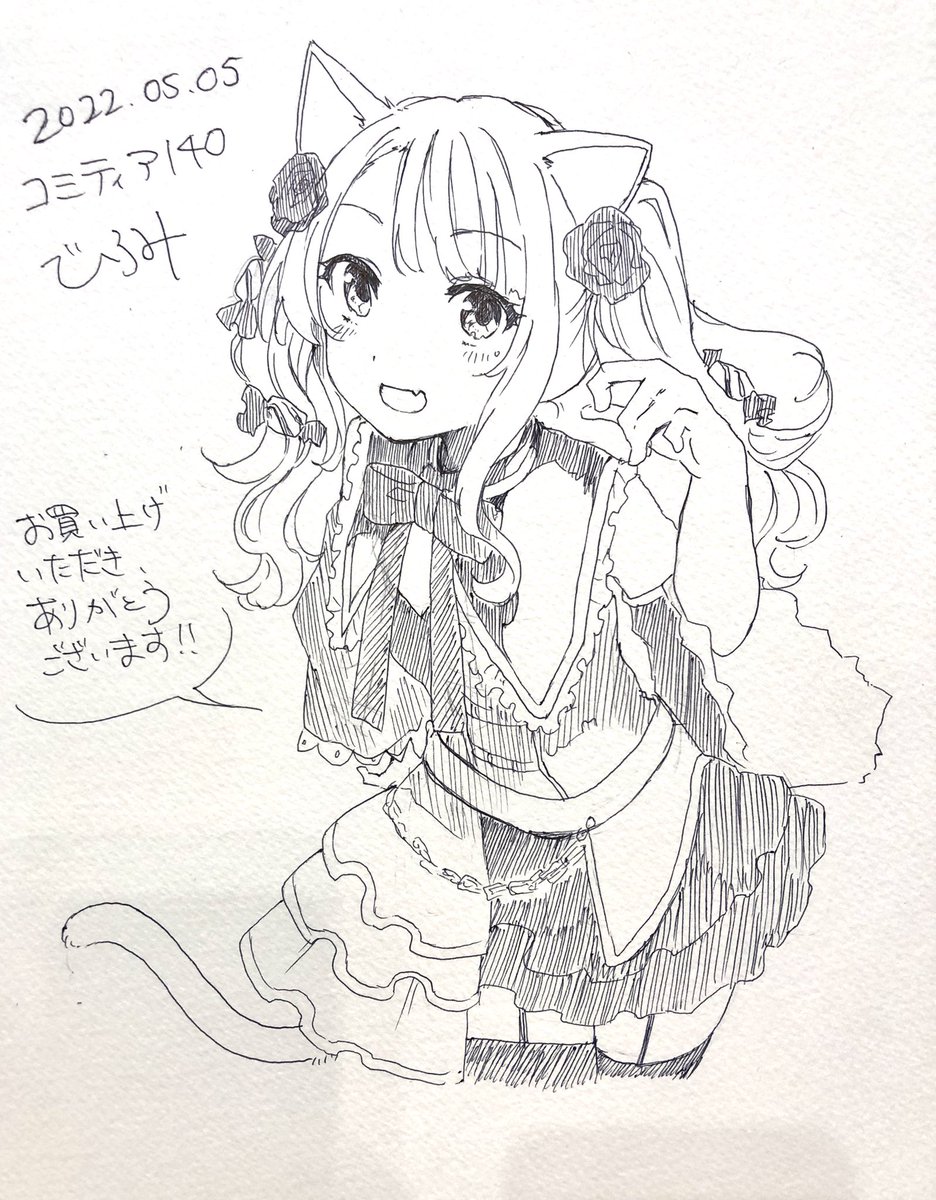 2022.05.05
コミティア140
でろみ
お買い上げ
いただき、
ありがとう
ございます!!